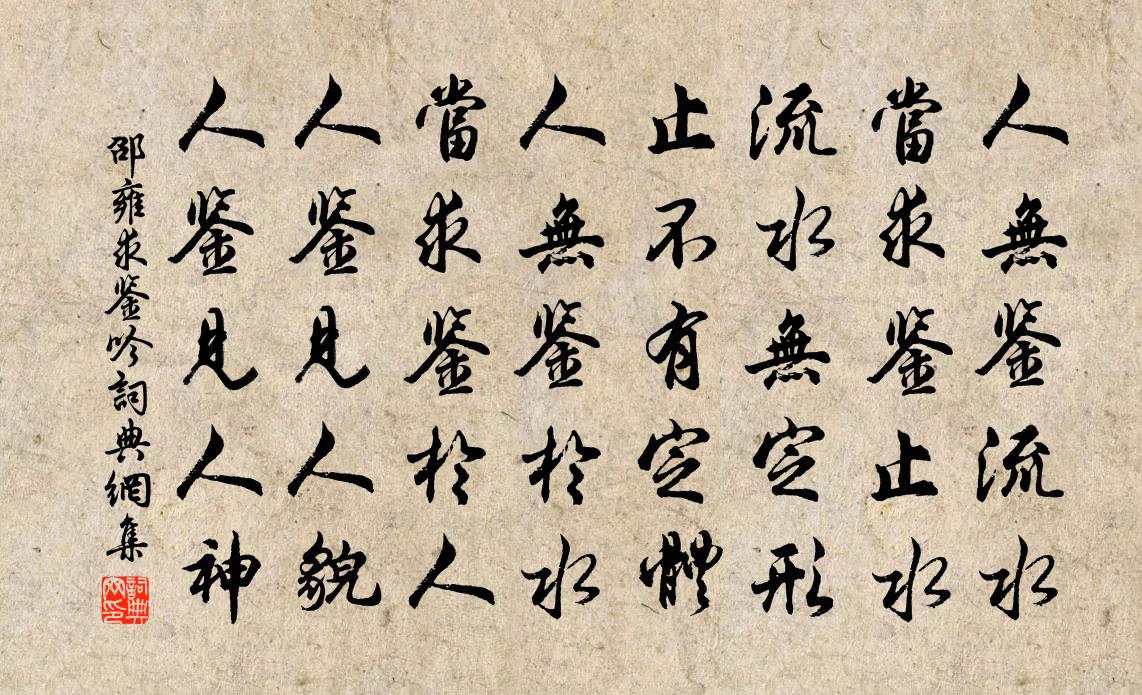 人無鉴流水
當求鉴止水
流水無定形
止不有定體
人無鉴於水
當求鉴於人
人鉴見人貌
人鉴見人神
邵雍求鉴吟詞典網集
詞典
网印